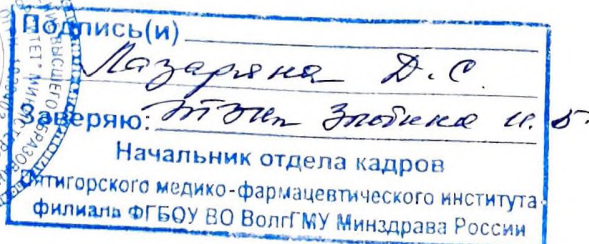 Подпись(и)
Лазаряна Д.С.
Заверяю:
Начальник отдела кадров
Пятигорского медико-фармацевтического института-
филиала ФГБОУ ВО ВолгГМУ Минздрава России